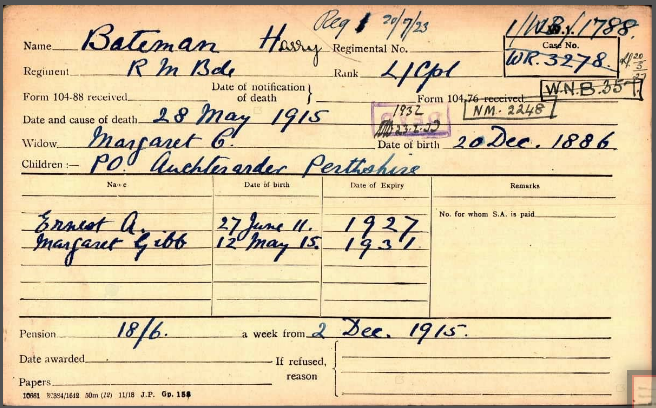 Reg 1 20/7/23
1/W.B./1788.
Name Bateman Harry Regimental No.
Case No.
WR.3278.
Regiment R M Bde Rank L/Cpl
W.N.B.35
Form 104-88 received Date of notification of death } Form 104-76 received
1932
NM.2248
Date and cause of death 28 May 1915
Widow Margaret G. Date of birth 20 Dec. 1886.
Children :— P.O. Auchterarder Perthshire
Name Date of birth Date of Expiry Remarks
No. for whom S.A. is paid
Ernest A. 27 June 11. 1927
Margaret Gibb 12 May 15. 1931
Pension 18/6. a week from 2 Dec. 1915.
Date awarded If refused, reason
Papers
50m (12) 11/18 J.P. Gp. 158